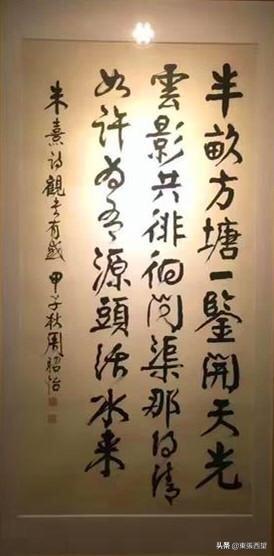 半畝方塘一鑒開天光
雲影共徘徊問渠那得清
如許為有源頭活水来
朱熹詩觀書有感 甲子秋周昭怡
头条 @東張西望